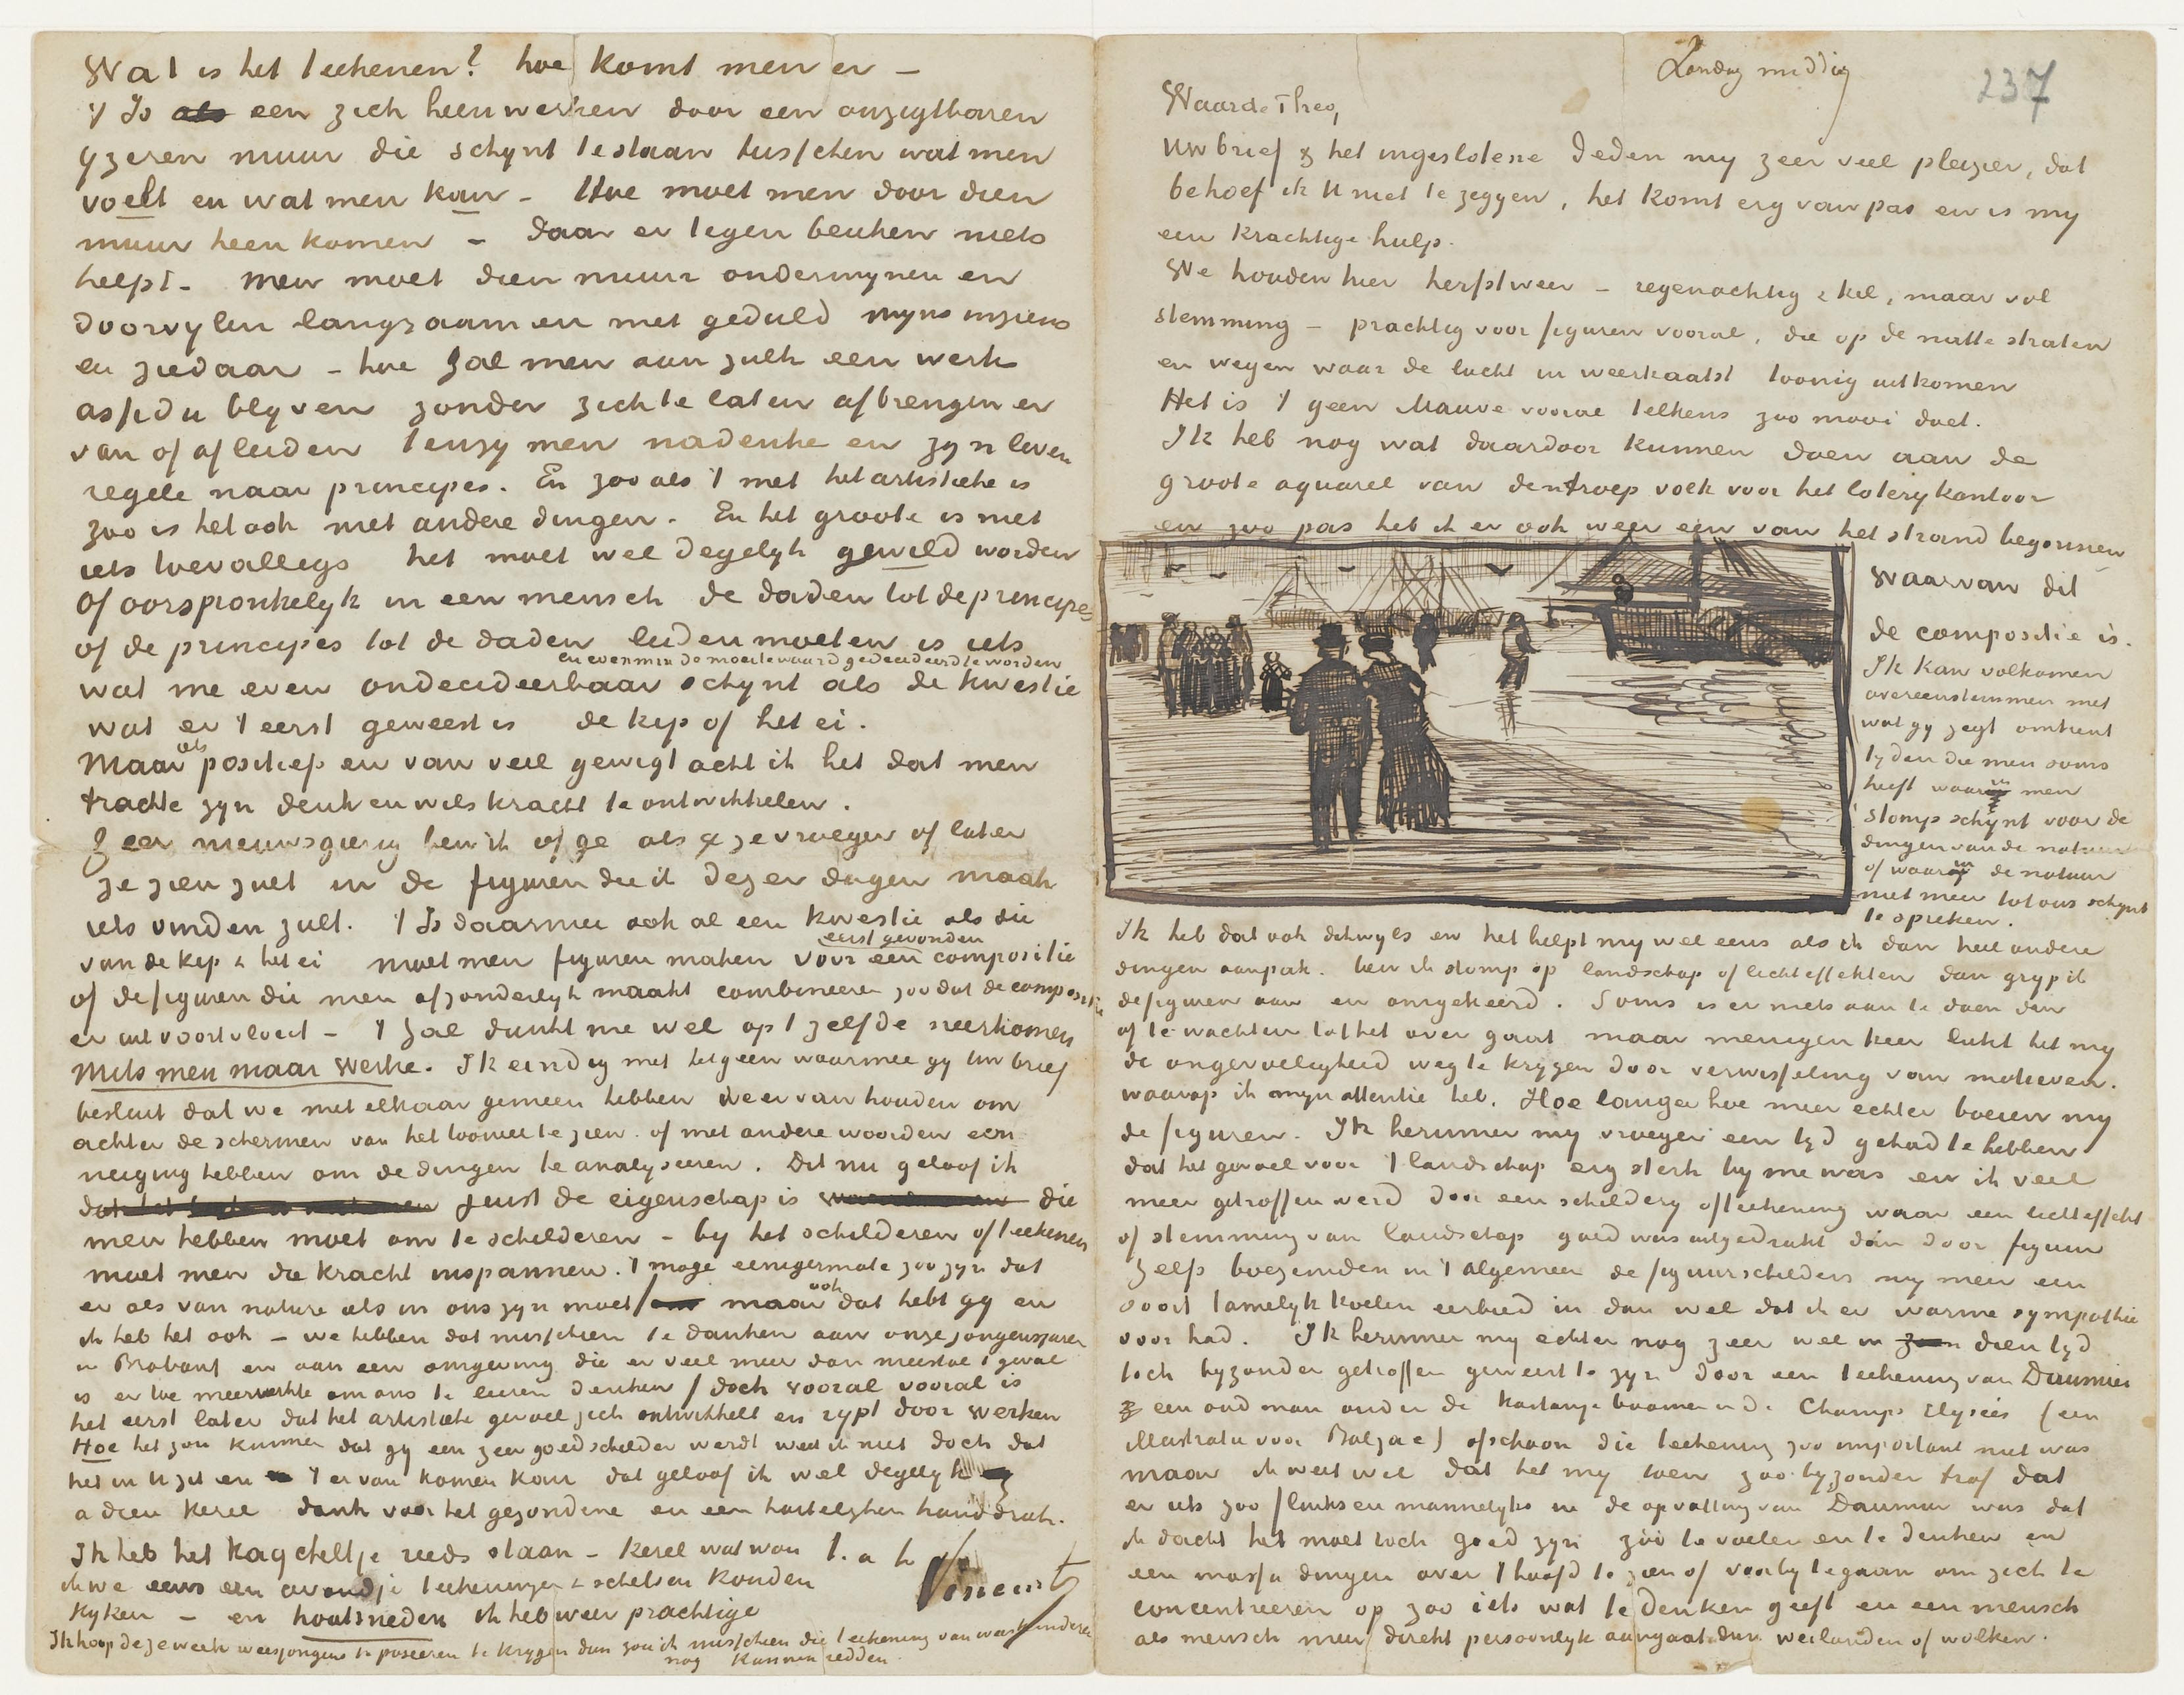 Wat is het teekenen? hoe komt men er –
't Is als een zich heenwerken door een onzigtbaren
yzeren muur die schynt te staan tusschen wat men
voelt en wat men kan – Hoe moet men door dien
muur heen komen – daar er tegen beuken niets
helpt – Men moet dien muur ondermynen en
doorvylen langzaam en met geduld myns inziens
en ziedaar – hoe zal men aan zulk een werk
assidu blyven zonder zich te laten afbrengen er
van of afleiden tenzy men nadenke en zyn leven
regele naar principes. En zoo als 't met het artistieke is
zoo is het ook met andere dingen. En het groote is niet
iets toevalligs het moet wel degelyk gewild worden
Of oorspronkelyk in een mensch de daden tot de principes
of de principes tot de daden leiden moeten is iets
en evenmin de moeite waard gedecideerd te worden
wat me even ondecideerbaar schynt als de kwestie
wat er 't eerst geweest is de kip of het ei.
Maar als positief en van veel gewigt acht ik het dat men
trachte zyn denk en wilskracht te ontwikkelen.
Zeer nieuwsgierig ben ik of ge als ge ze vroeger of later
ze zien zult in de figuren die ik dezer dagen maak
iets vinden zult. 't Is daarmee ook al een kwestie als die
van de kip & het ei moet men figuren maken voor een eerst gevonden compositie
of de figuren die men afzonderlyk maakt combineeren zoo dat de compositie
er uit voortvloeit – 't Zal dunkt me wel op 't zelfde neerkomen
mits men maar werke. Ik eindig met hetgeen waarmee gy Uw brief
besluit dat we met elkaar gemeen hebben we er van houden om
achter de schermen van het tooneel te zien of met andere woorden een
neiging hebben om de dingen te analyseeren. Dit nu geloof ik
juist de eigenschap is die
men hebben moet om te schilderen – by het schilderen of teekenen
moet men die kracht inspannen. 't moge eenigermate zoo zyn dat
er als van nature iets in ons zyn moet / maar dat ook hebt gy en
ik heb het ook – we hebben dat misschien te danken aan onze jongensjaren
in Brabant en aan een omgeving die er veel meer dan meestal 't geval
is er toe meewerkte om ons te leeren denken / doch vooral vooral is
het eerst later dat het artistieke gevoel zich ontwikkelt en rypt door werken
Hoe het zou kunnen dat gy een zeer goed schilder werdt weet ik niet doch dat
het in U zit en 't er van komen kan dat geloof ik wel degelyk
adieu kerel dank voor het gezondene en een hartelyken handdruk.
t. à t. Vincent
Ik heb het kagcheltje reeds staan – kerel wat wou
ik we eens een avondje teekeningen & schetsen konden
kyken – en houtsneden ik heb weer prachtige
Ik hoop deze week weesjongens te poseeren te krygen dan zou ik misschien die teekening van waisenkinderen
nog kunnen redden.
Zondag middag
237
Waarde Theo,
Uw brief & het ingeslotene deden my zeer veel pleizier, dat
behoef ik U niet te zeggen, het komt erg van pas en is my
een krachtige hulp.
We houden hier herfstweer – regenachtig & kil, maar vol
stemming – prachtig voor figuren vooral, die op de natte straten
en wegen waar de lucht in weerkaatst toonig uitkomen
Het is 't geen Mauve vooral telkens zoo mooi doet.
Ik heb nog wat daardoor kunnen doen aan de
groote aquarel van den troep volk voor het loterykantoor
en zoo pas heb ik er ook weer een van het strand begonnen
waarvan dit
de compositie is.
Ik kan volkomen
overeenstemmen met
wat gy zegt omtrent
tyden die men soms
heeft waarin men
stomp schynt voor de
dingen van de natuur
of waarin de natuur
niet meer tot ons schynt
te spreken.
Ik heb dat ook dikwyls en het helpt my wel eens als ik dan heel andere
dingen aanpak. ben ik stomp op landschap of lichteffekten dan gryp ik
de figuren aan en omgekeerd. Soms is er niets aan te doen dan
af te wachten tot het over gaat maar menigen keer lukt het my
de ongevoeligheid weg te krygen door verwisseling van motieven.
waarop ik myn attentie heb. Hoe langer hoe meer echter boeien my
de figuren. Ik herinner my vroeger een tyd gehad te hebben
dat het gevoel voor 't landschap erg sterk by me was en ik veel
meer getroffen werd door een schildery of teekening waar een lichteffekt
of stemming van landschap goed was uitgedrukt dan door figuur
Zelfs boezemden in 't algemeen de figuurschilders my meer een
soort tamelyk koelen eerbied in dan wel dat ik er warme sympathie
voor had. Ik herinner my echter nog zeer wel in dien tyd
toch byzonder getroffen geweest te zyn door een teekening van Daumier
een oud man onder de kastanje boomen in de Champs Elysées (een
illustratie voor Balzac) ofschoon die teekening zoo important niet was
maar ik weet wel dat het my toen zoo byzonder trof dat
er iets zoo flinks en mannelyks in de opvatting van Daumier was dat
ik dacht het moet toch goed zyn zóó te voelen en te denken en
een massa dingen over 't hoofd te zien of voorby te gaan om zich te
concentreeren op zoo iets wat te denken geeft en een mensch
als mensch meer direkt persoonlyk aangaat dan weilanden of wolken.